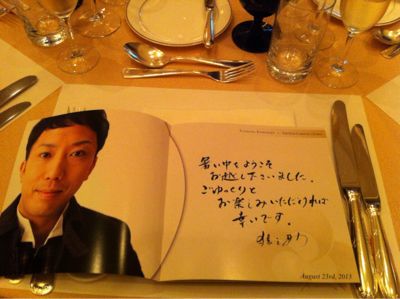 暑い中をようこそ
お越し下さいました。
ごゆっくりと
お楽しみいただければ
幸いです。
August 23rd, 2013